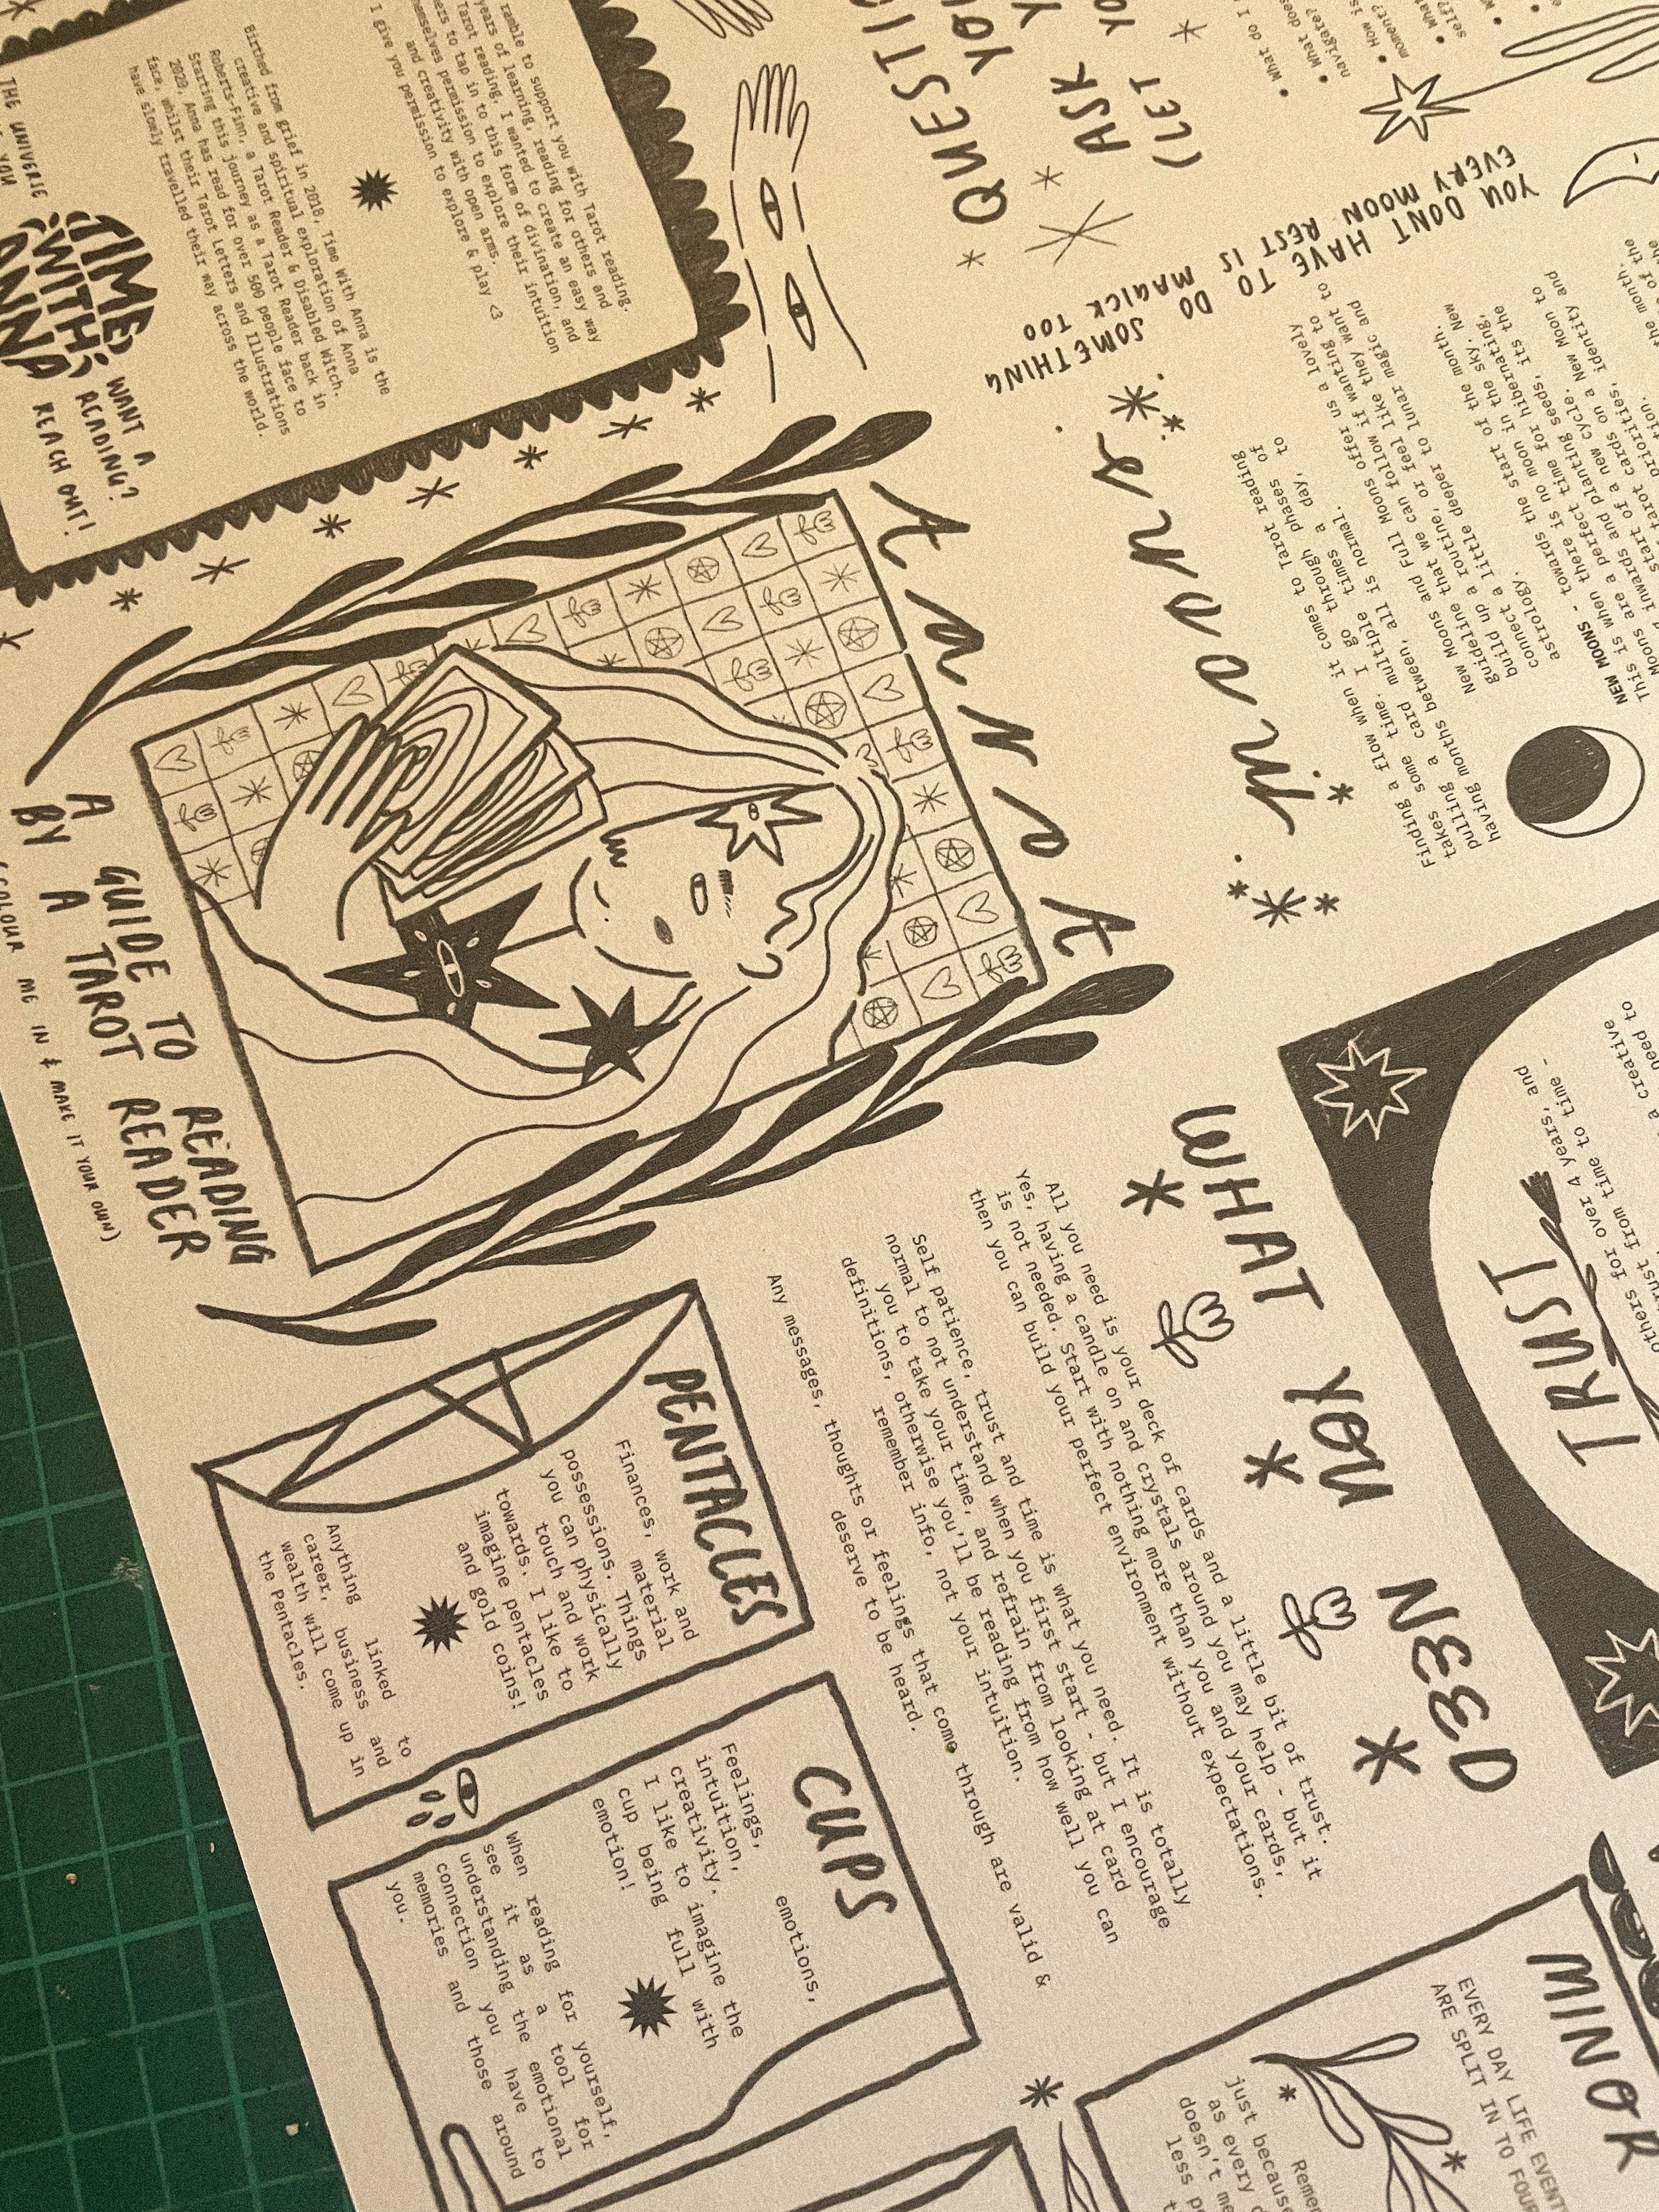 TAROT
A GUIDE TO READING
BY A TAROT READER
(COLOUR ME IN & MAKE IT YOUR OWN)
ramble to support you with Tarot reading.
years of learning, reading for others and
Tarot reading, I wanted to create an easy way
to tap in to this form of divination, and
permission to explore their intuition
and creativity with open arms.
I give you permission to explore & play <3
Birthed from grief in 2018, Time With Anna is the
creative and spiritual exploration of Anna
Roberts-Finn, a Tarot Reader & Disabled Witch.
Starting this journey as a Tarot Reader back in
2020, Anna has read for over 500 people face to
face, whilst their Tarot Letters and Illustrations
have slowly travelled their way across the world.
THE UNIVERSE
YOU
TIME
WITH
ANNA
WANT A
READING?
REACH OUT!
WHAT YOU NEED
All you need is your deck of cards and a little bit of trust.
Yes, having a candle on and crystals around you may help - but it
is not needed. Start with nothing more than you and your cards,
then you can build your perfect environment without expectations.
Self patience, trust and time is what you need. It is totally
normal to not understand when you first start - but I encourage
you to take your time, and refrain from looking at card
definitions, otherwise you'll be reading from how well you can
remember info, not your intuition.
Any messages, thoughts or feelings that come through are valid &
deserve to be heard.
PENTACLES
Finances, work and
material
possessions. Things
you can physically
touch and work
towards. I like to
imagine pentacles
and gold coins!
Anything linked to
career, business and
wealth will come up in
the Pentacles.
CUPS
Feelings, emotions,
intuition,
creativity.
I like to imagine the
cup being full with
emotion!
When reading for yourself,
see it as a tool for
understanding the emotional
connection you have to
memories and those around
you.
MINOR
EVERY DAY LIFE
ARE SPLIT IN TO FOUR
just because
as every
TRUST
others for over 4 years, and
trust from time to time -
need to
a creative
QUESTI
ASK
(LET
What do I
What does
navigate?
How is
moment?
self?
YOU DONT HAVE TO DO SOMETHING
EVERY MOON REST IS MAGICK TOO
moons
Finding a flow when it comes to Tarot reading
takes some time. I go through phases of
pulling a card multiple times a day, to
having months between, all is normal.
New Moons and Full Moons offer us a lovely
guideline that we can follow if wanting to
build up a routine, or feel like they want to
connect a little deeper to lunar magic and
astrology.
NEW MOONS - towards the start of the month.
This is when there is no moon in the sky. New
Moons are a perfect time for hibernating,
inwards and planting seeds, its the
start of a new cycle.
tarot cards on a New Moon to
priorities, identity and